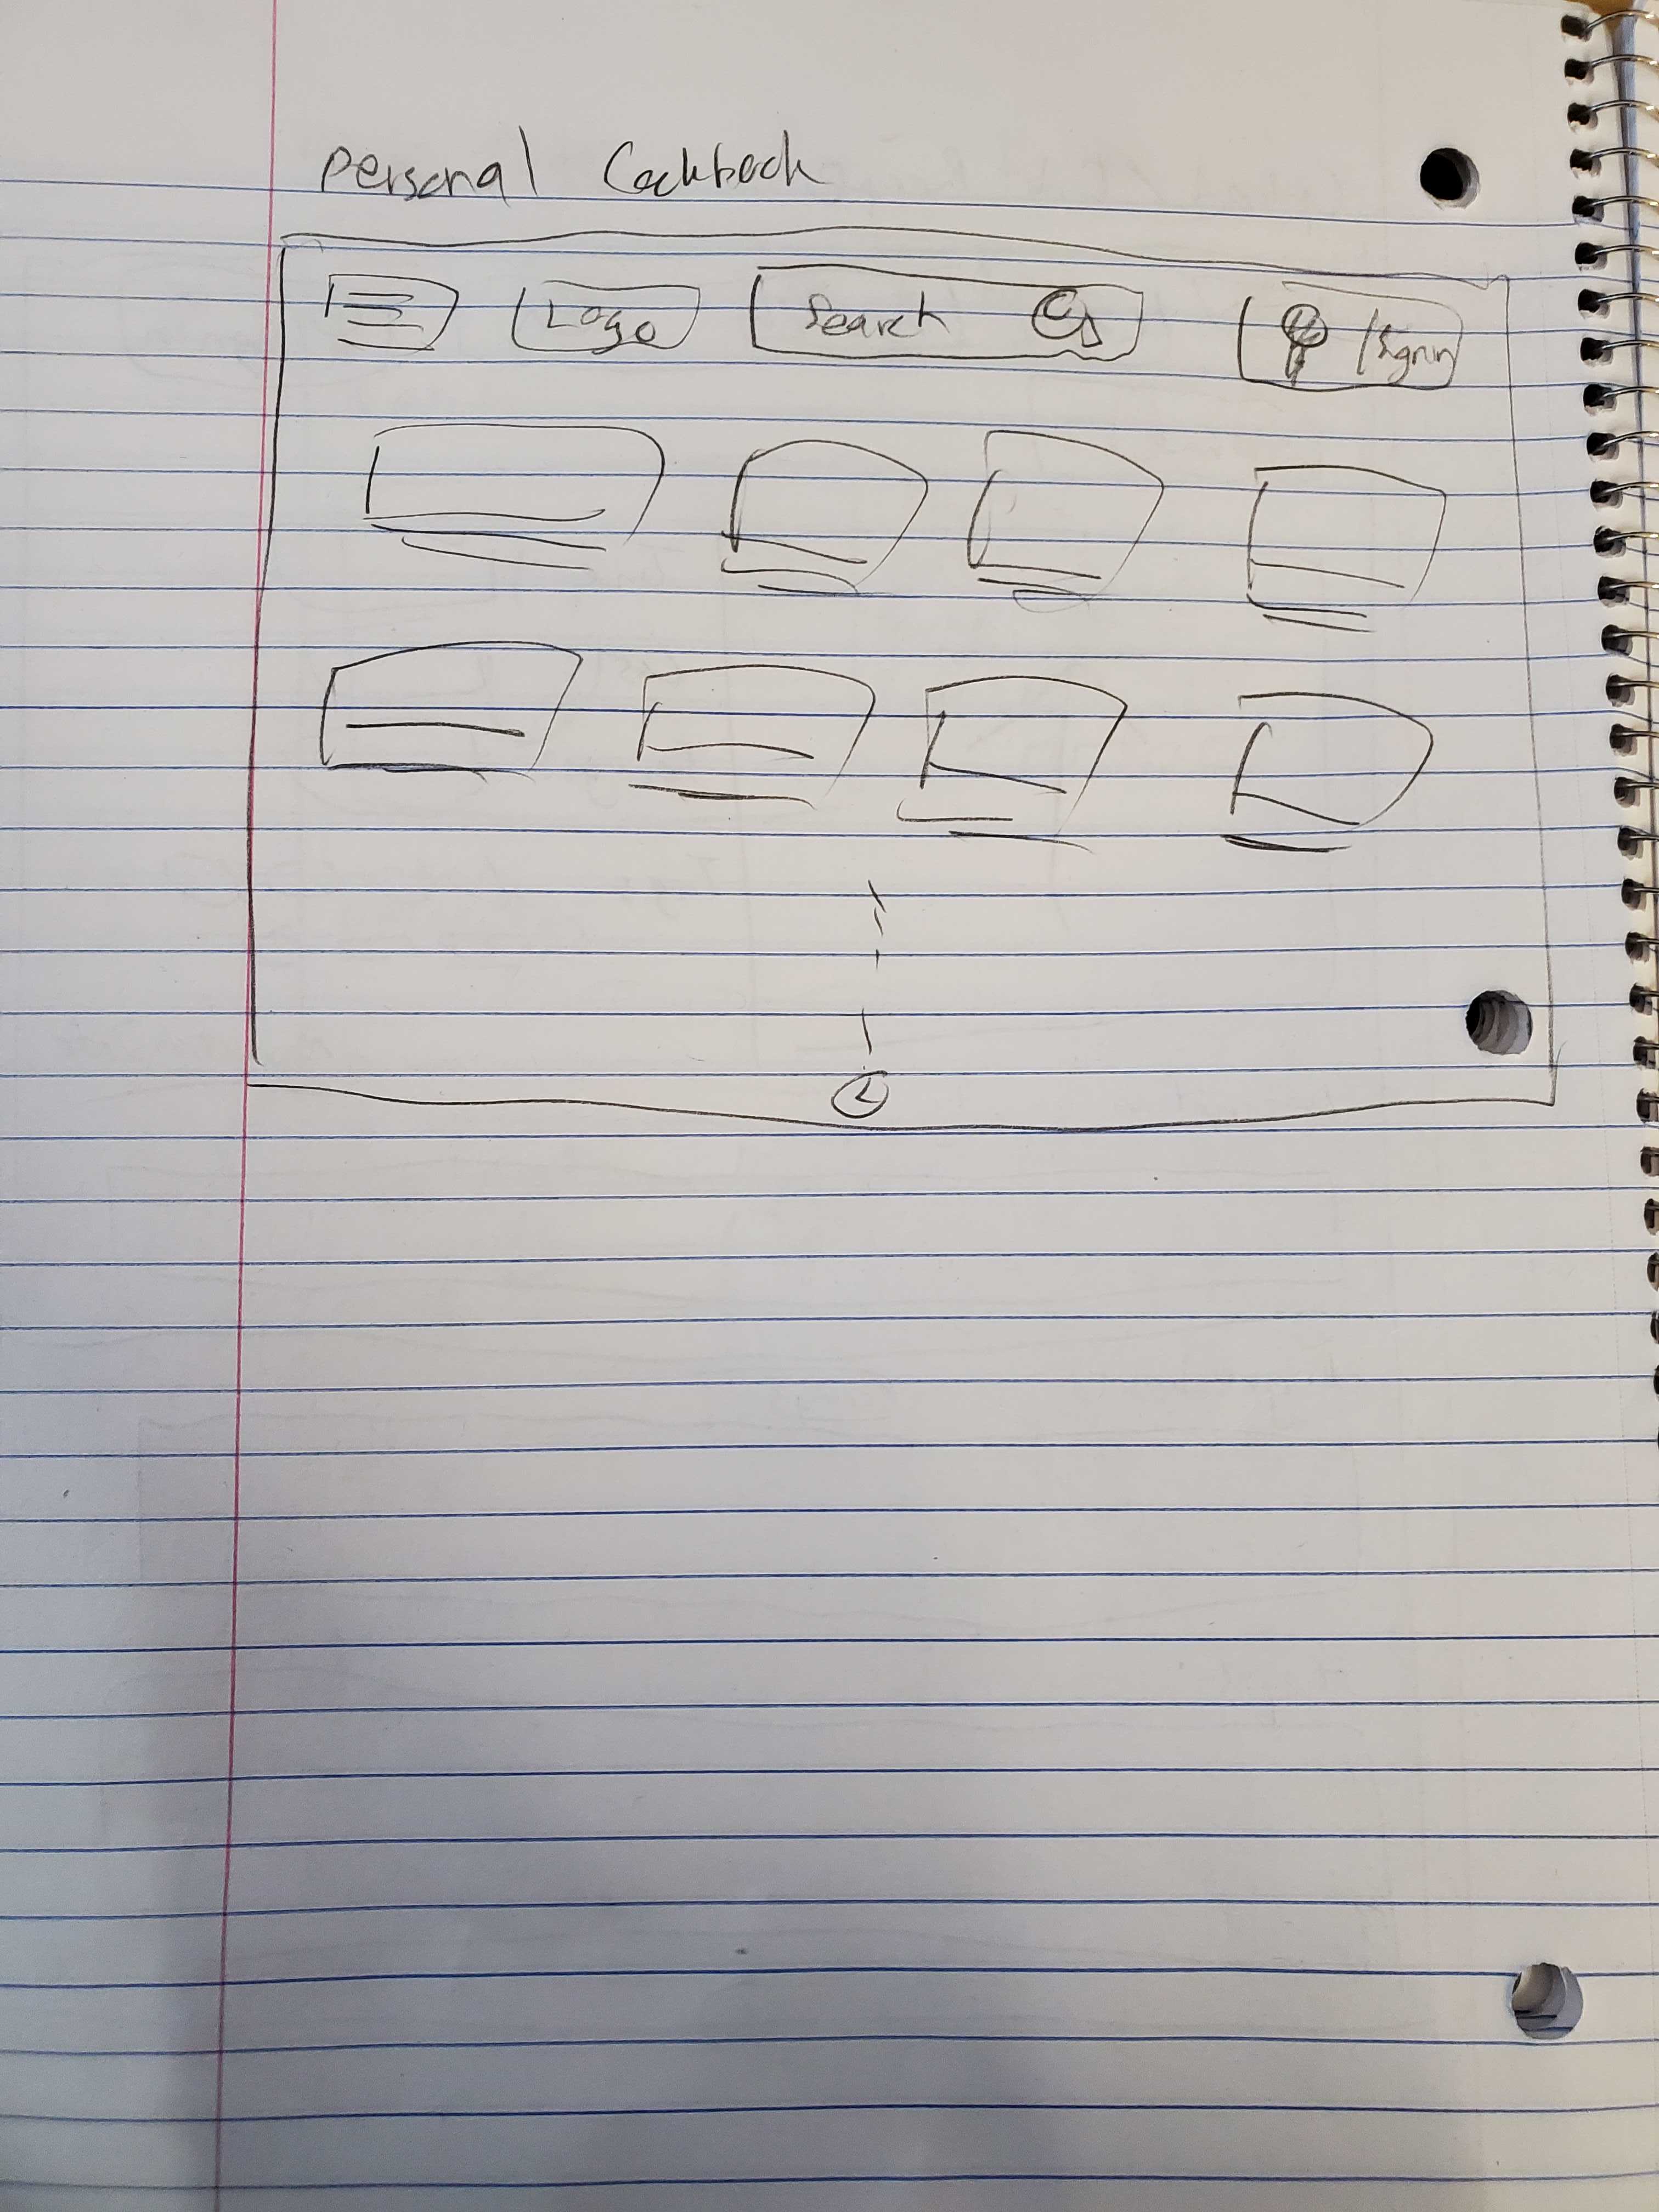 Personal Cookbook
Logo Search /Signin